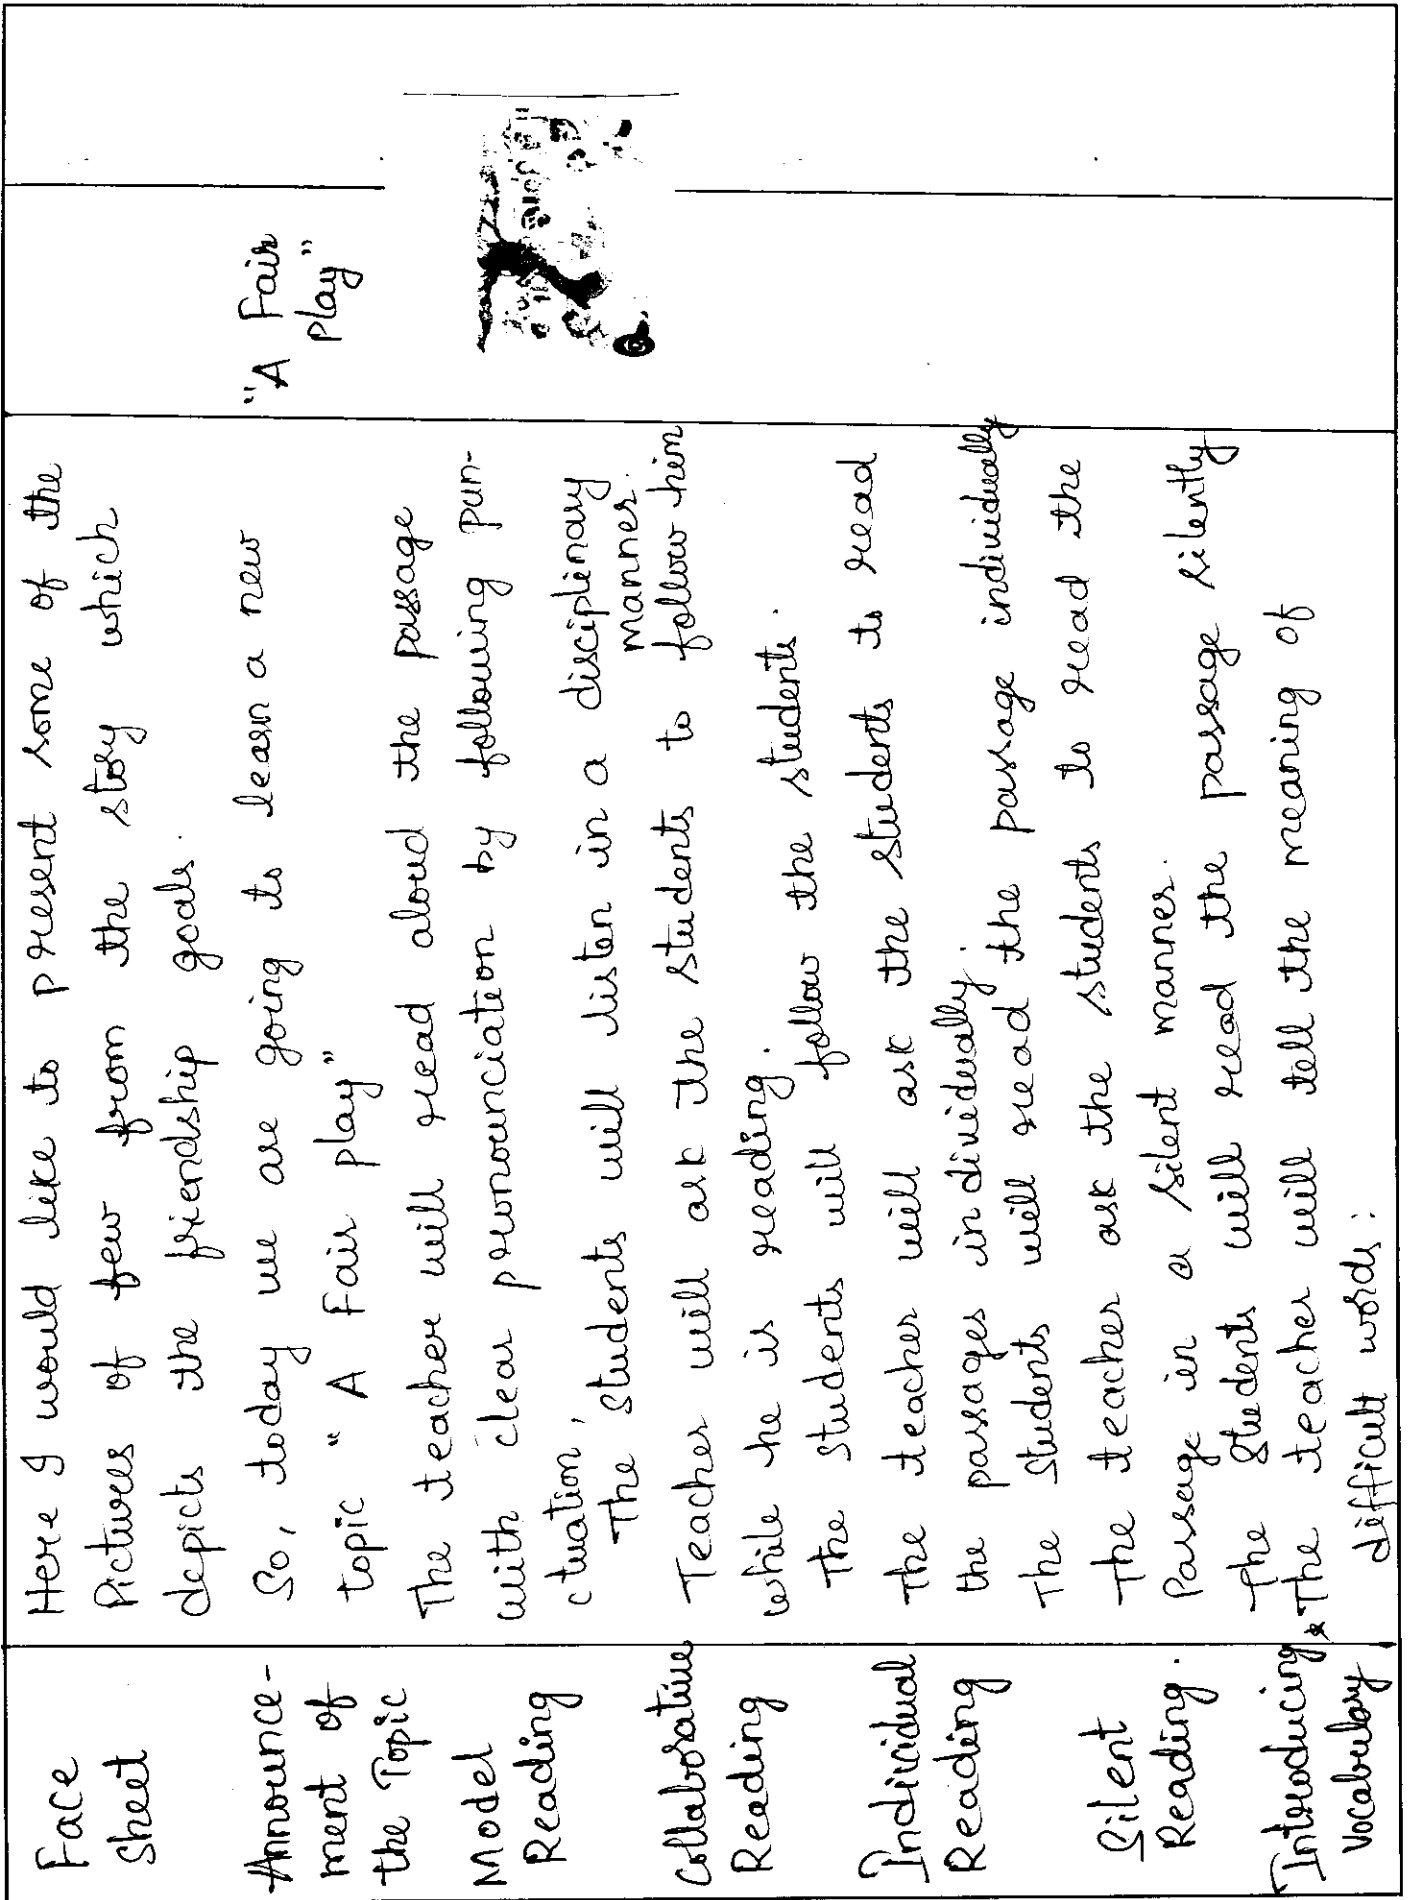 Face
Sheet
Here I would like to present some of the
Pictures of few from the story which
depicts the friendship goals.
Announce-
ment of
the Topic
So, today we are going to learn a new
topic " A Fair play"
"A Fair
play"
Model
Reading
The teacher will read aloud the passage
with clear pronounciation by following pun-
ctuation,
The students will listen in a disciplinary
manner.
Collaborative
Reading
Teacher will ask the students to follow him
while he is reading.
The students will follow the students.
Indicidual
Reading
The teacher will ask the students to read
the passages individually.
The students will read the passage individually
Silent
Reading.
The teacher ask the students to read the
Passage in a silent manner.
The students will read the passage silently
Introducing
Vocabulary
* The teacher will tell the meaning of
difficult words: